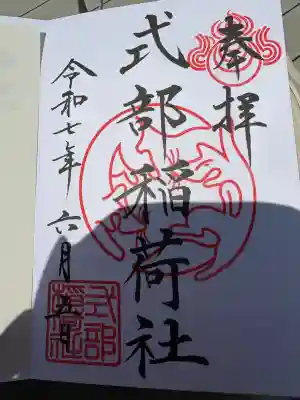 奉拝
式部稲荷社
令和七年 六月 五日
式部稲荷